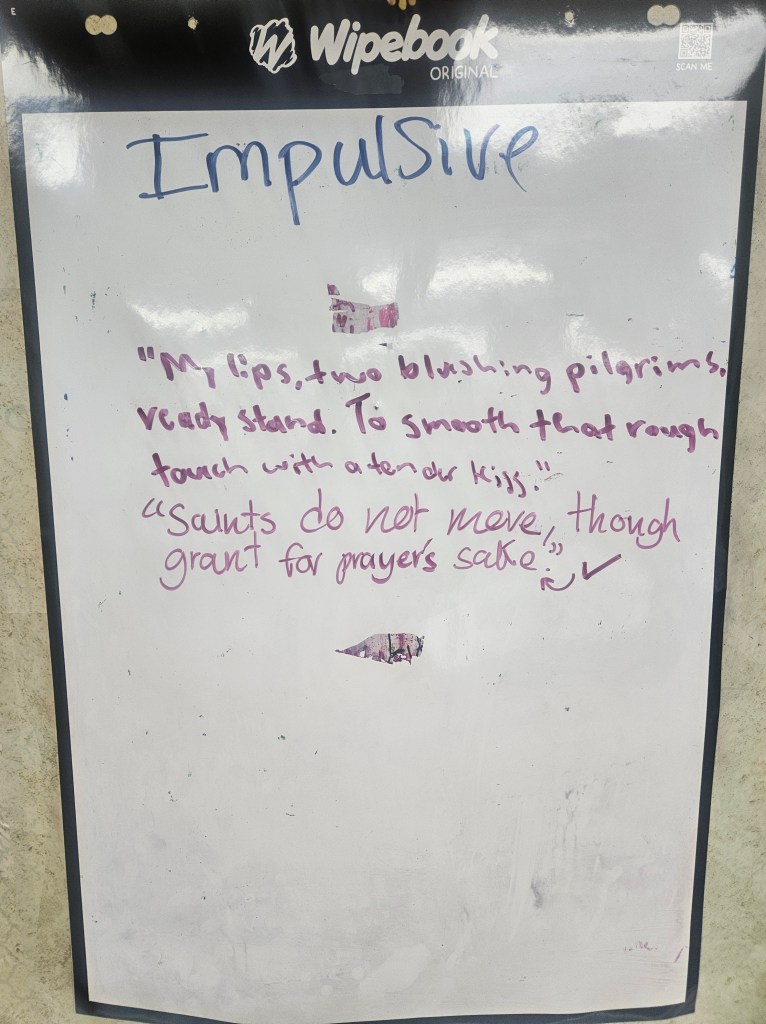 E
Wipebook
ORIGINAL
SCAN ME
Impulsive
"My lips, two blushing pilgrims,
ready stand. To smooth that rough
touch with a tender kiss."
"Saints do not move, though
grant for prayer's sake."